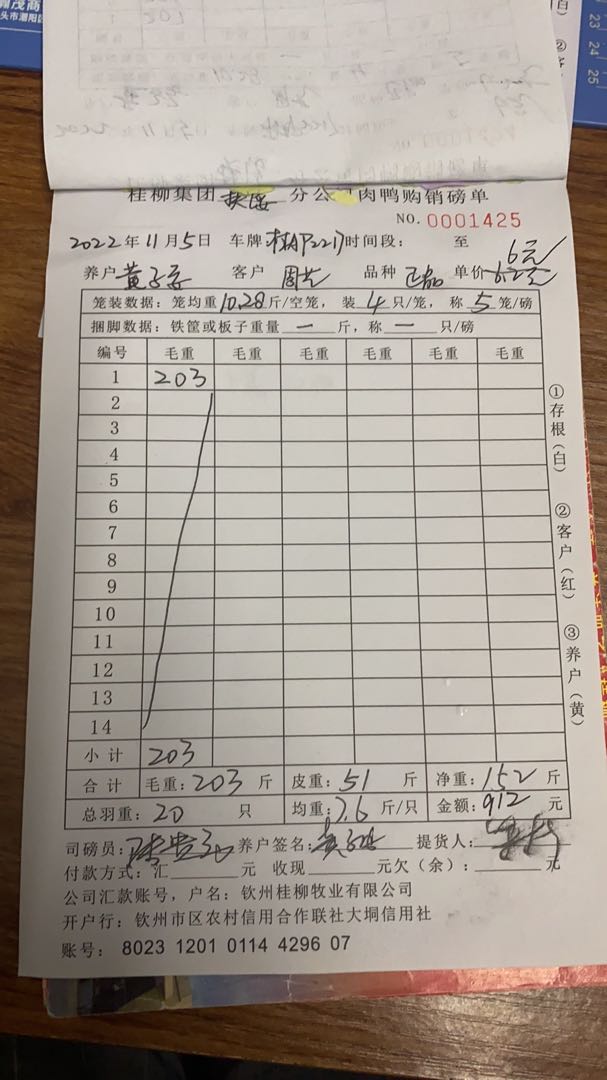 23
24
25
桂柳集团 分公 肉鸭购销磅单
NO. 0001425
2022年11月5日 车牌: 时间段: 至
6元
养户 黄 客户 周 品种 正品 单价 6.2元
笼装数据: 笼均重10.28斤/空笼, 装4只/笼, 称5笼/磅
捆脚数据: 铁筐或板子重量 一 斤, 称 一 只/磅
编号 毛重 毛重 毛重 毛重 毛重 毛重
1 203
2
3
4
5
6
7
8
9
10
11
12
13
14
小计 203
合计 毛重:203斤 皮重:51斤 净重:152斤
总羽重:20只 均重:7.6斤/只 金额:912元
①存根(白) ②客户(红) ③养户(黄)
司磅员: 养户签名: 提货人:
付款方式: 汇 元 收现 元欠(余): 元
公司汇款账号, 户名: 钦州桂柳牧业有限公司
开户行: 钦州市区农村信用合作联社大垌信用社
账号: 8023 1201 0114 4296 07